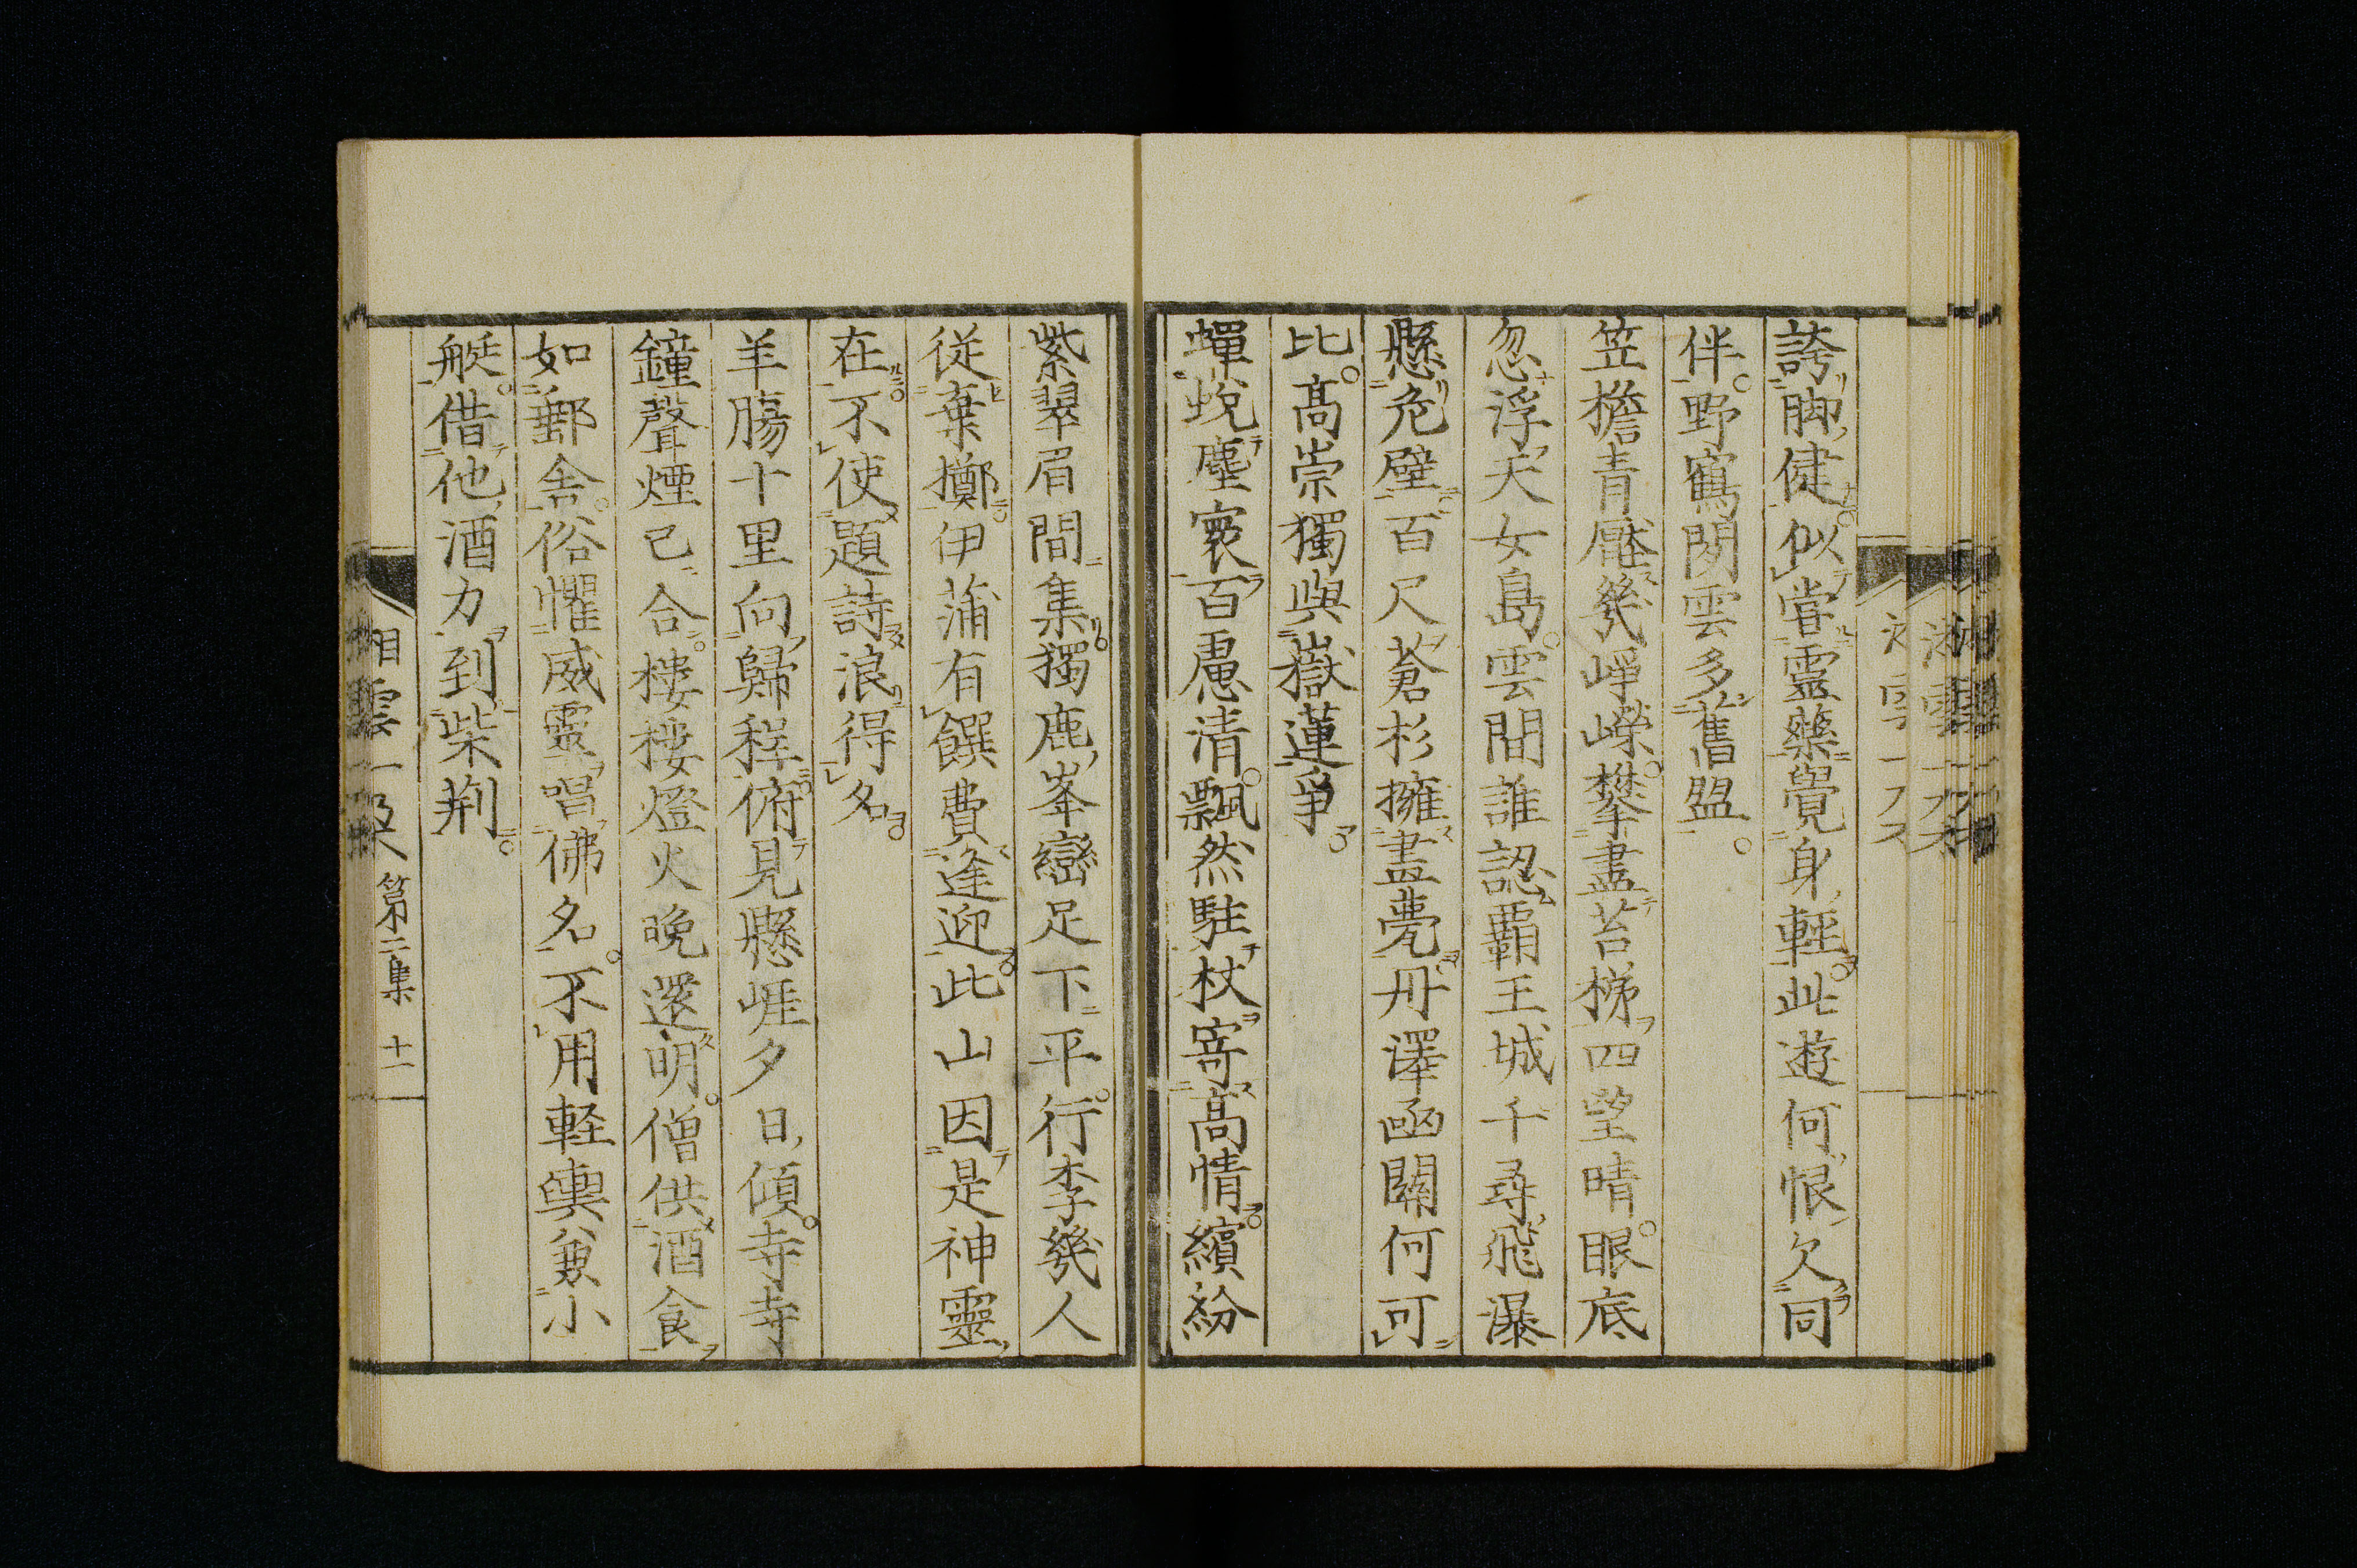 誇脚健似嘗靈藥覺身輕此遊何恨欠同
伴野鶴閑雲多舊盟
笠檐青壓幾崢嶸攀盡苔梯四望晴眼底
忽浮天女島雲間誰認覇王城千尋飛瀑
懸危壁百尺蒼杉擁盡甍丹澤函關何可
比高崇獨與嶽蓮爭
蟬蛻塵寰百慮清飄然駐杖寄高情繽紛
紫翠眉間集獨鹿峯巒足下平行李幾人
從棄擲伊蒲有饌費逢迎此山因是神靈
在不使題詩浪得名
羊膓十里向歸程俯見懸崕夕日傾寺寺
鐘聲煙已合樓樓燈火晩還明僧供酒食
如郵舎俗懼威靈唱佛名不用輕輿兼小
艇借他酒力到柴荆
湘雲一朶 第二集 十一